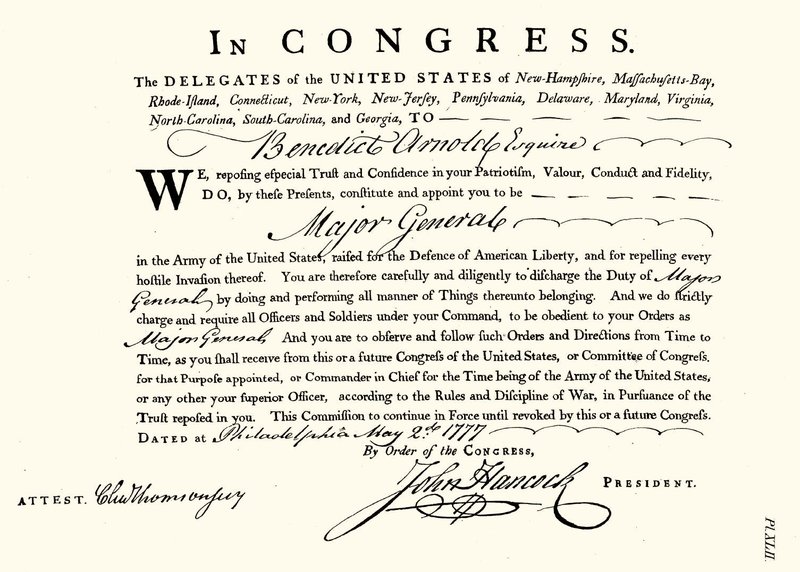 IN CONGRESS.
The DELEGATES of the UNITED STATES of New-Hampſhire, Maſſachuſetts-Bay,
Rhode-Iſland, Connecticut, New-York, New-Jerſey, Pennſylvania, Delaware, Maryland, Virginia,
North-Carolina, South-Carolina, and Georgia, TO
Benedict Arnold Esquire
WE, repoſing eſpecial Truſt and Confidence in your Patriotiſm, Valour, Conduct and Fidelity,
DO, by theſe Preſents, conſtitute and appoint you to be
Major General
in the Army of the United States, raiſed for the Defence of American Liberty, and for repelling every
hoſtile Invaſion thereof. You are therefore carefully and diligently to diſcharge the Duty of Major
General by doing and performing all manner of Things thereunto belonging. And we do ſtrictly
charge and require all Officers and Soldiers under your Command, to be obedient to your Orders as
Major General And you are to obſerve and follow ſuch Orders and Directions from Time to
Time, as you ſhall receive from this or a future Congreſs of the United States, or Committee of Congreſs.
for that Purpoſe appointed, or Commander in Chief for the Time being of the Army of the United States,
or any other your ſuperior Officer, according to the Rules and Diſcipline of War, in Purſuance of the
Truſt repoſed in you. This Commiſſion to continue in Force until revoked by this or a future Congreſs.
DATED at Philadelphia May 2d. 1777
By Order of the CONGRESS,
John Hancock PRESIDENT.
ATTEST. Chas Thomson secy
Pl.XLII.